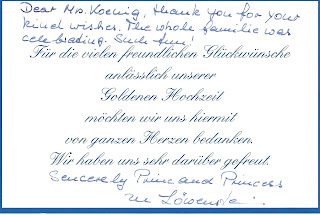 Dear Mrs. Koenig, thank you for your
kind wishes. The whole familie was
celebrating. Such fun!
Für die vielen freundlichen Glückwünsche
anlässlich unserer
Goldenen Hochzeit
möchten wir uns hiermit
von ganzen Herzen bedanken.
Wir haben uns sehr darüber gefreut.
Sencerely Prince and Princess
zu